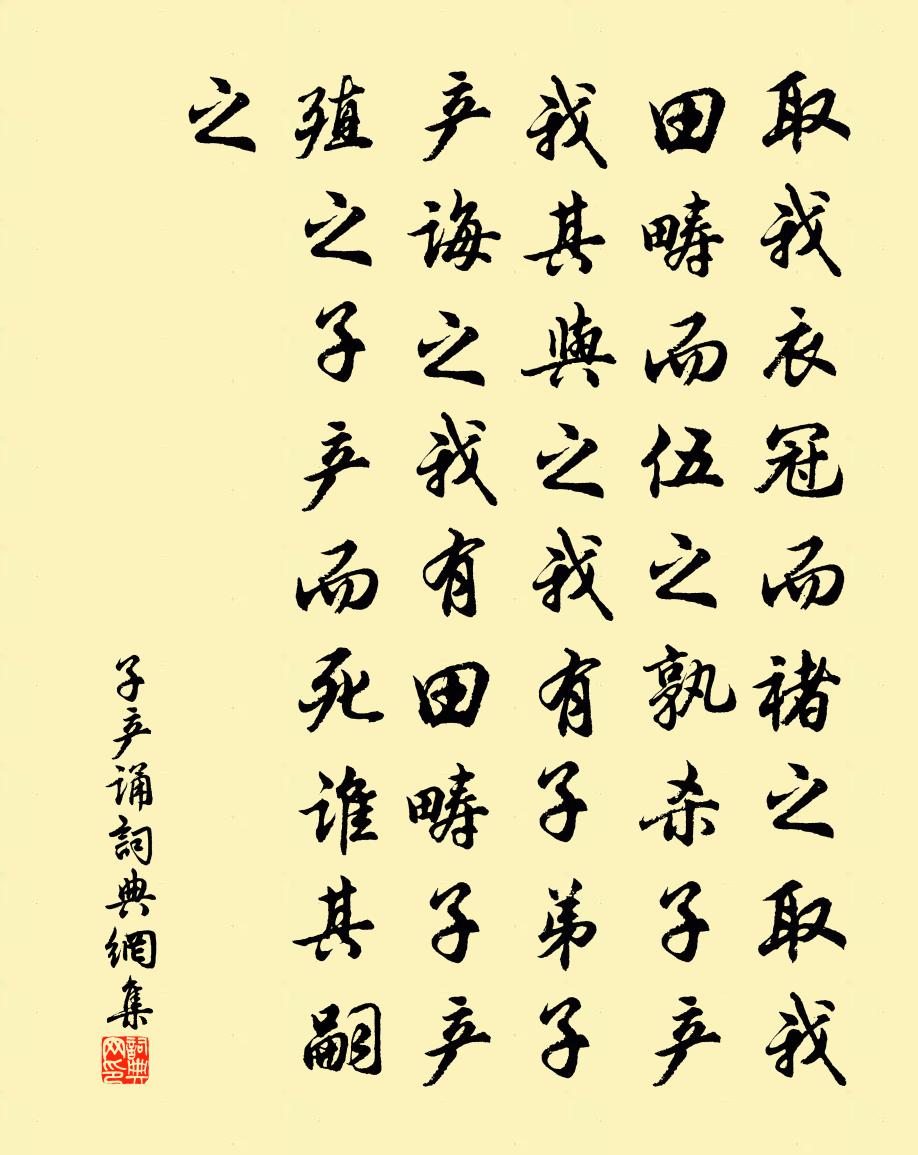 取我衣冠而褚之取我
田畴而伍之孰杀子产
我其與之我有子弟子
产诲之我有田畴子产
殖之子产而死谁其嗣
之
子产诵詞典網集
詞典网印